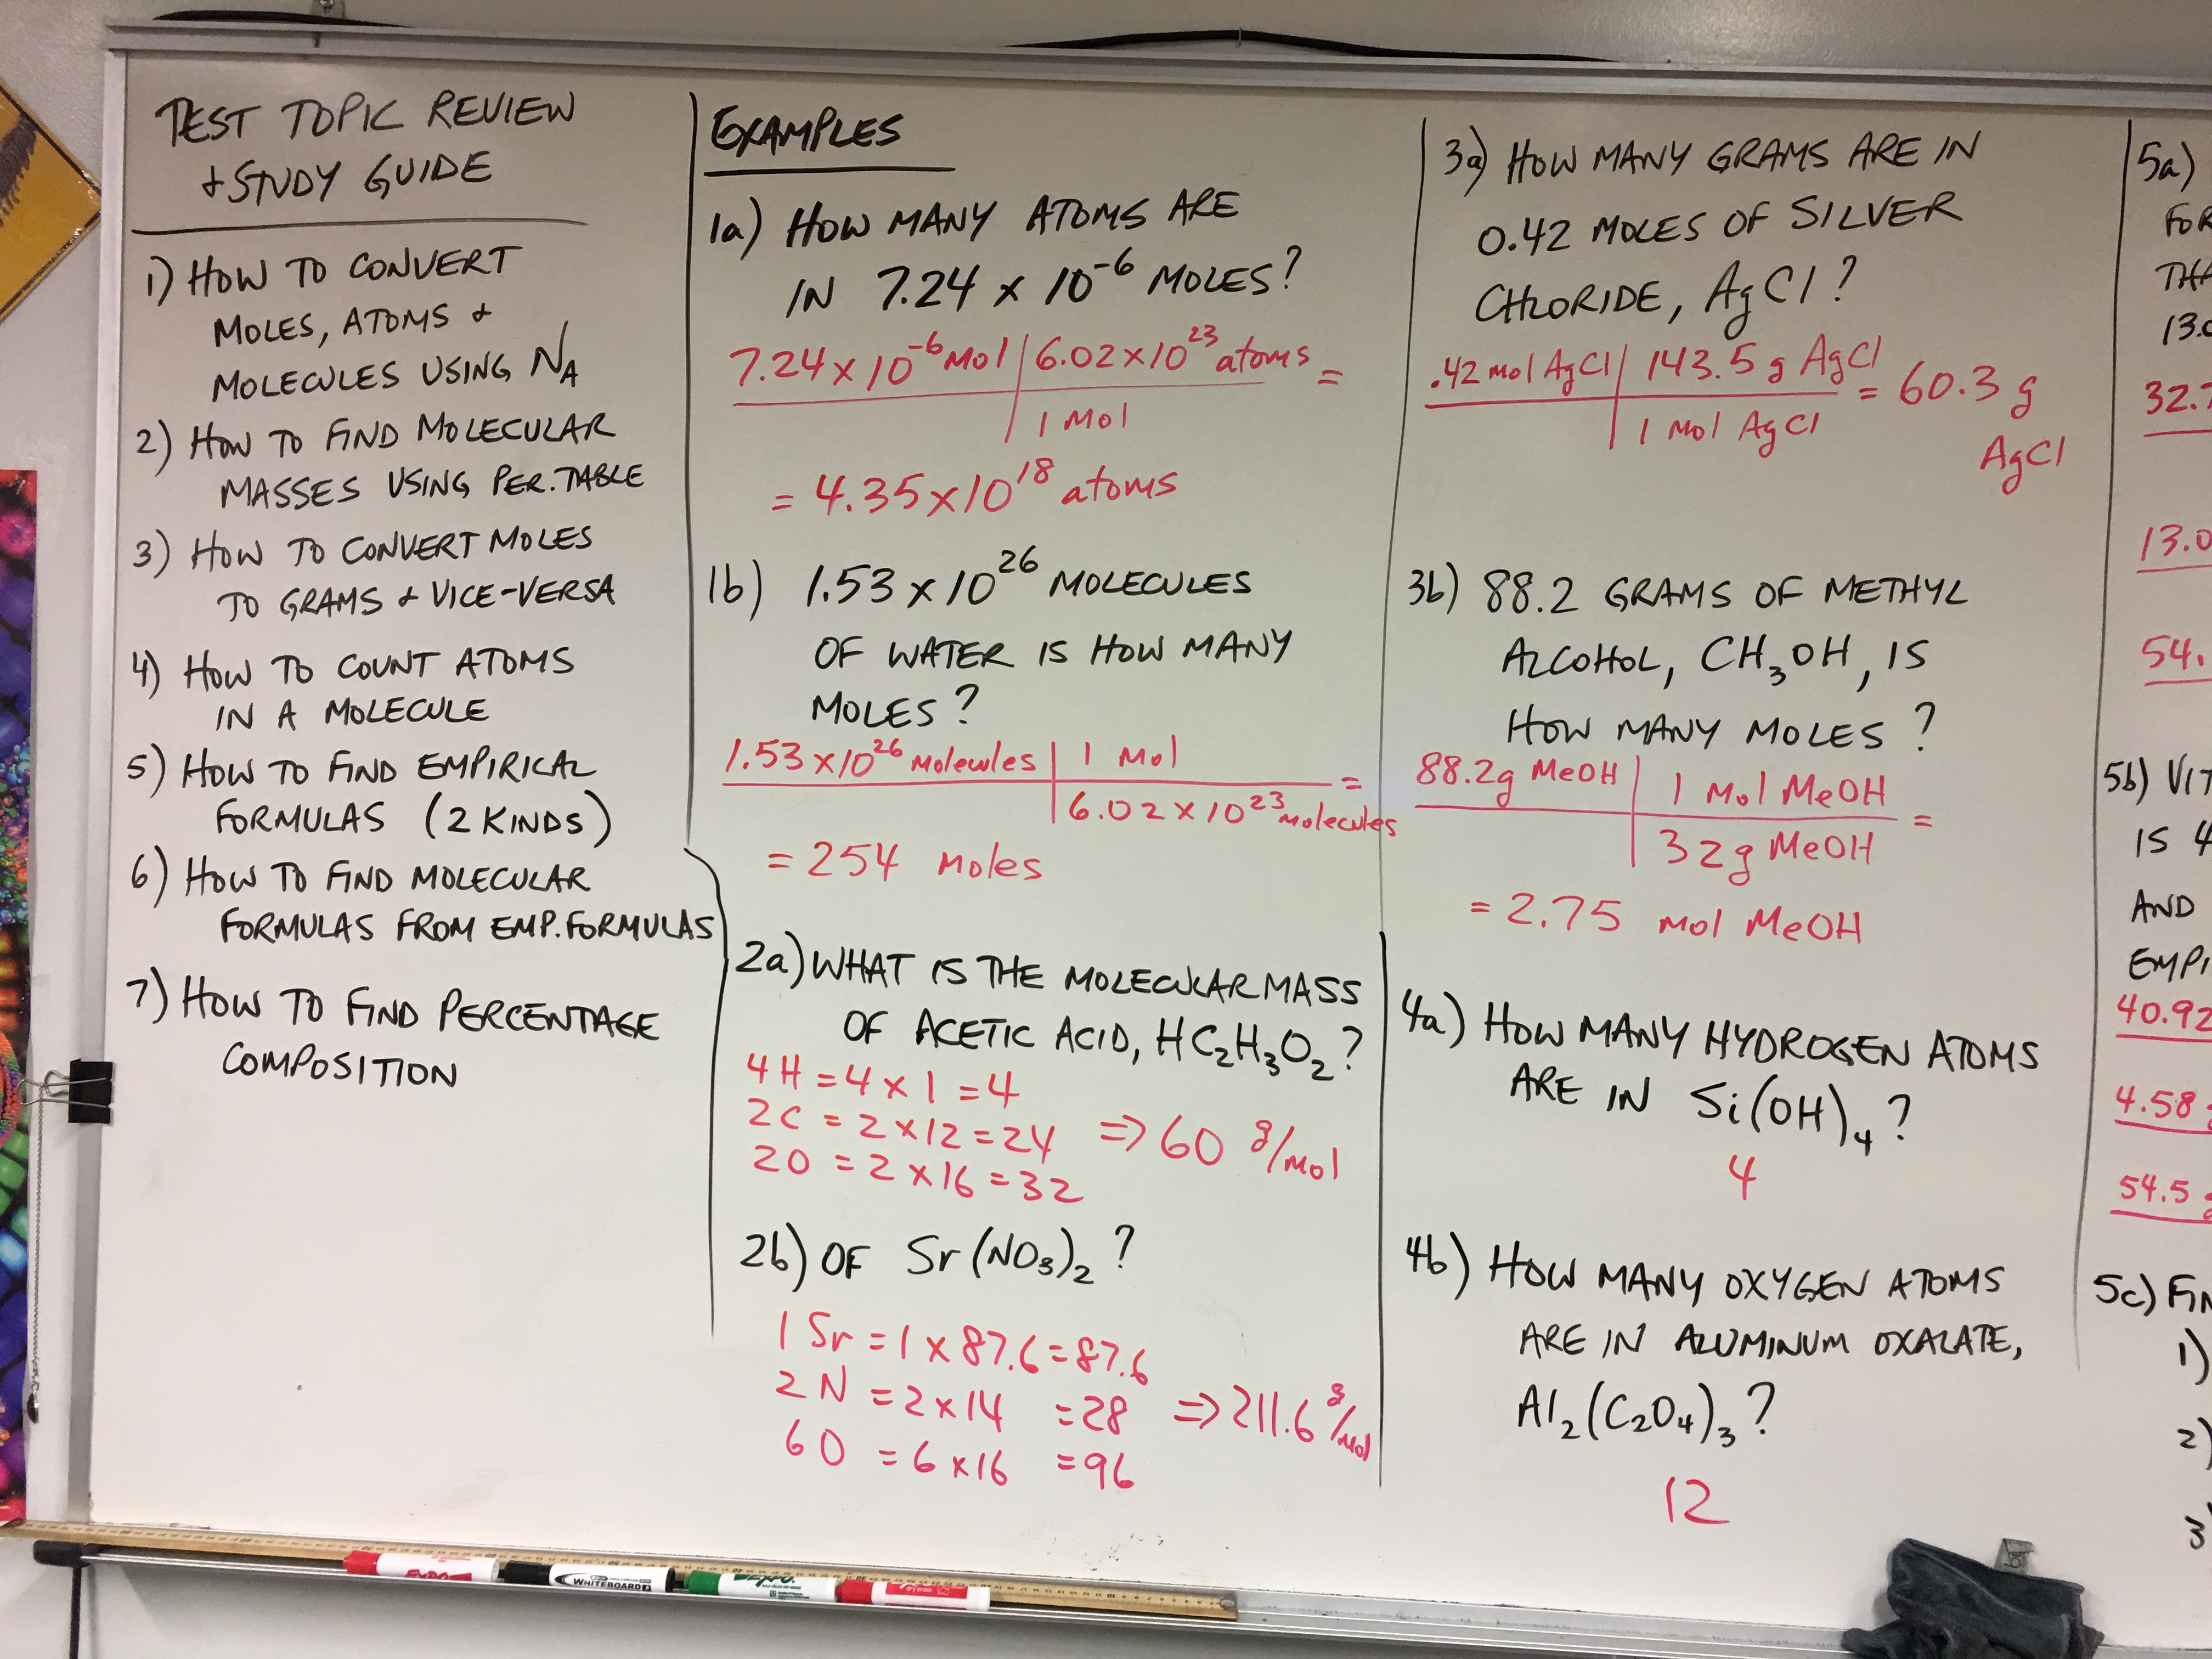 TEST TOPIC REVIEW
+ STUDY GUIDE
1) HOW TO CONVERT
MOLES, ATOMS +
MOLECULES USING N_A
2) HOW TO FIND MOLECULAR
MASSES USING PER. TABLE
3) HOW TO CONVERT MOLES
TO GRAMS + VICE-VERSA
4) HOW TO COUNT ATOMS
IN A MOLECULE
5) HOW TO FIND EMPIRICAL
FORMULAS (2 KINDS)
6) HOW TO FIND MOLECULAR
FORMULAS FROM EMP. FORMULAS
7) HOW TO FIND PERCENTAGE
COMPOSITION
EXAMPLES
1a) HOW MANY ATOMS ARE
IN 7.24 x 10⁻⁶ MOLES?
7.24 x 10⁻⁶ Mol | 6.02 x 10²³ atoms =
1 Mol
= 4.35 x 10¹⁸ atoms
1b) 1.53 x 10²⁶ MOLECULES
OF WATER IS HOW MANY
MOLES?
1.53 x 10²⁶ Molecules | 1 Mol =
6.02 x 10²³ molecules
= 254 Moles
2a) WHAT IS THE MOLECULAR MASS
OF ACETIC ACID, HC₂H₃O₂?
4 H = 4 x 1 = 4
2 C = 2 x 12 = 24 ⇒ 60 g/mol
2 O = 2 x 16 = 32
2b) OF Sr(NO₃)₂?
1 Sr = 1 x 87.6 = 87.6
2 N = 2 x 14 = 28 ⇒ 211.6 g/mol
6 O = 6 x 16 = 96
3a) HOW MANY GRAMS ARE IN
0.42 MOLES OF SILVER
CHLORIDE, AgCl?
.42 mol AgCl | 143.5 g AgCl = 60.3 g
1 Mol AgCl
AgCl
3b) 88.2 GRAMS OF METHYL
ALCOHOL, CH₃OH, IS
HOW MANY MOLES?
88.2g MeOH | 1 Mol MeOH =
32g MeOH
= 2.75 mol MeOH
4a) HOW MANY HYDROGEN ATOMS
ARE IN Si(OH)₄?
4
4b) HOW MANY OXYGEN ATOMS
ARE IN ALUMINUM OXALATE,
Al₂(C₂O₄)₃?
12
5a)
FOR
THA
13.0
32.7
13.0
54.
5b) VIT
IS 4
AND
EMPI
40.92
4.58 g
54.5 g
5c) FIN
1)
2)
3
EXPO
WHITEBOARD
EXPO